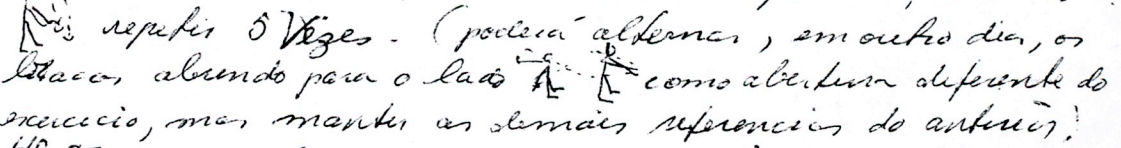 repetir 5 Vezes. (poderá alternar, em outro dia, os
abrindo para o lado como abertura diferente do
exercício, mas manter as demais referencias do anterior!